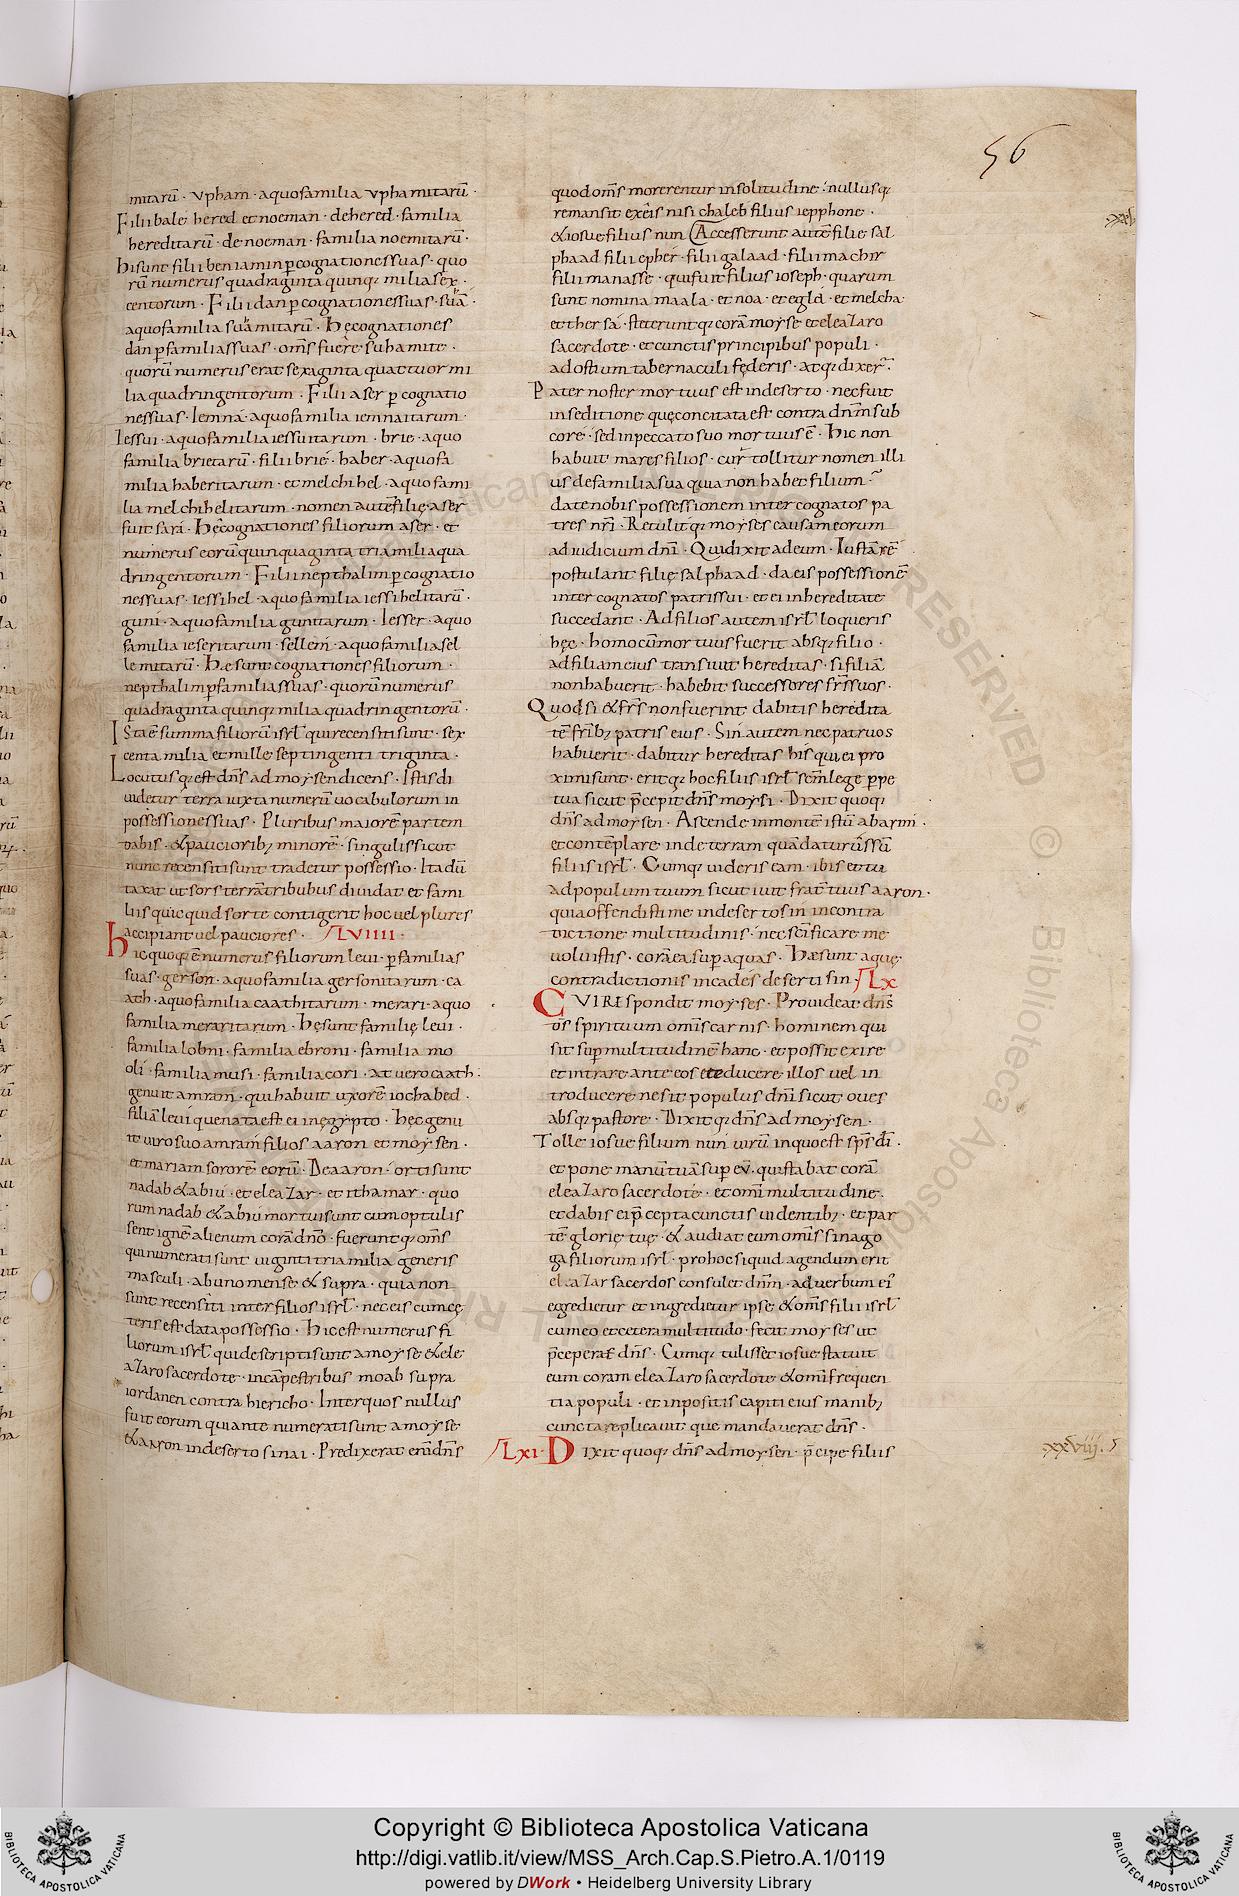 56
mitarū · vpham · aquofamilia vphamitarū ·
Filii bale · hered et noeman · dehered · familia
hereditarū · de noeman · familia noemitarū ·
hi sunt filii beniamin p̄ cognationes suas · quo
rū numerus quadraginta quinq; milia sex
centorum · Filii dan p̄ cognationes suas · suā ·
aquofamilia suamitarū · hę cognationes
dan p̄ familias suas · om̄s fuere suhamite ·
quorū numerus erat sexaginta quattuor mi
lia quadringentorum · Filii aser p̄ cognatio
nes suas · Iemna · aquofamilia iemnaitarum ·
Iessui · aquofamilia iessuitarum · brie · aquo
familia brietarū · filii brie · haber · aquofa
milia haberitarum · et melchihel · aquo fami
lia melchihelitarum · nomen autē filię aser
fuit sara · hę cognationes filiorum aser · et
numerus eorū quinquaginta tria milia qua
dringentorum · Filii nepthalim p̄ cognatio
nes suas · iessihel · aquo familia iessihelitarū ·
guni · aquofamilia gunitarum · Iesser · aquo
familia ieseritarum · sellem · aquo familia sel
lemitarū · hæ sunt cognationes filiorum ·
nepthalim p̄ familias suas · quorū numerus
quadraginta quinq; milia quadringentorū ·
Ista ē summa filiorū isrl̄ qui recensiti sunt · sex
centa milia et mille septingenti triginta ·
Locutusq; est dn̄s ad moysen dicens · Istis di
uidetur terra iuxta numerū uocabulorum in
possessiones suas · Pluribus maiorē partem
dabis · & paucioribz minorē · singulis sicut
nunc recensiti sunt tradetur possessio · Ita dū
taxat ut sors terrā tribubus diuidat et fami
liis quicquid sorte contigerit hoc uel plures
accipiant uel pauciores · LVIIII ·
hic quoq; ē numerus filiorum leui · p̄ familias
suas · gerson · aquo familia gersonitarum · ca
ath · aquo familia caathitarum · merari · aquo
familia meraritarum · hę sunt familię leui ·
familia lobni · familia ebroni · familia mo
oli · familia musi · familia cori · at uero caath ·
genuit amram · qui habuit uxorē iochabed ·
filiā leui que nata est ei in ęgypto · hęc genu
it uiro suo amram filios aaron et moysen ·
et mariam sororē eorū · De aaron · orti sunt
nadab & abiu · et eleazar · et ithamar · quo
rum nadab & abiu mortui sunt cum optulis
sent ignē alienum corā dn̄o · fueruntq; om̄s
qui numerati sunt uiginti tria milia generis
masculi · ab uno mense & supra · quia non
sunt recensiti inter filios isrl̄ · nec eis cum cę
teris est data possessio · hic est numerus fi
liorum isrl̄ qui descripti sunt a moyse & ele
azaro sacerdote · in cāpestribus moab supra
iordanen contra hiericho · Inter quos nullus
fuit eorum qui ante numerati sunt a moyse
& aaron in deserto sinai · Predixerat eni dn̄s
quod om̄s morerentur in solitudine · nullusq;
remansit ex eis nisi chaleb filius iepphone ·
& iosue filius nun Accesserunt autē filie sal
phaad filii epher · filii galaad · filii machir
filii manasse · qui fuit filius ioseph · quarum
sunt nomina maala · et noa · et eglā · et melcha ·
et thersa · steteruntq; corā moyse et eleazaro
sacerdote · et cunctis principibus populi ·
ad ostium tabernaculi fęderis · atq; dixer̄ ·
Pater noster mortuus est in deserto · nec fuit
in seditione quę concitata est contra dn̄m sub
core · sed in peccato suo mortuus ē · hic non
habuit mares filios · cur tollitur nomen illi
us de familia sua quia non habet filium ·
date nobis possessionem inter cognatos pa
tres nr̄i · Retulitq; moyses causam eorum
ad iudicium dn̄i · Qui dixit ad eum · Iustā rē
postulant filię salphaad · da eis possessionē
inter cognatos patris sui · et ei in hereditate
succedant · Ad filios autem isrl̄ loqueris
hęc · homo cū mortuus fuerit absq; filio ·
ad filiam eius transiuit hereditas · si filiā
non habuerit · habebit successores fr̄s suos ·
Quod si & fr̄s non fuerint dabitis heredita
tē fr̄ibz patris eius · Sin autem nec patruos
habuerit · dabitur hereditas his qui ei pro
ximi sunt · eritq; hoc filiis isrl̄ scm̄ lege p̄pe
tua sicut p̄cepit dn̄s moysi · Dixit quoq;
dn̄s ad moysen · Ascende in monte istū abarim ·
et contēplare inde terram quā daturus sū
filiis isrl̄ · Cumq; uideris eam · ibis et tu
ad populum tuum sicut iuit frat̄ tuus aaron ·
quia offendisti me in deserto sin in contra
dictione multitudinis · nec sc̄ificare me
uoluistis · corā ea sup̄ aquas · hæ sunt aquę
contradictionis in cades deserti sin · LX
CVI Respondit moyses · Prouideat dn̄s
dō̄s spirituum omīs carnis · hominem qui
sit sup̄ multitudinē hanc · et possit exire
et intrare ante eos et educere illos uel in
troducere ne sit populus dn̄i sicut oues
absq; pastore · Dixitq; dn̄s ad moysen ·
Tolle iosue filium nun uirū in quo est sp̄s dī ·
et pone manū tuā sup̄ eū · qui stabat corā
eleazaro sacerdote · et omi multitudine ·
et dabis ei p̄cepta cunctis uidentibz · et par
tē glorię tuę · & audiat eum omīs sinago
ga filiorum isrl̄ · pro hoc siquid agendum erit
eleazar sacerdos consulet dn̄m · ad uerbum ei'
egredietur et ingredietur ipse & om̄s filii isrl̄
cum eo et cetera multitudo · fecit moyses ut
p̄ceperat dn̄s · Cumq; tulisset iosue statuit
eum coram eleazaro sacerdote & omi frequen
tia populi · et inpositis capiti eius manibz
cuncta replicauit que mandauerat dn̄s ·
LXI · Dixit quoq; dn̄s ad moysen · p̄cipe filiis
xxviij · 5
Copyright © Biblioteca Apostolica Vaticana
http://digi.vatlib.it/view/MSS_Arch.Cap.S.Pietro.A.1/0119
powered by DWork • Heidelberg University Library
BIBLIOTECA APOSTOLICA VATICANA
BIBLIOTECA APOSTOLICA VATICANA